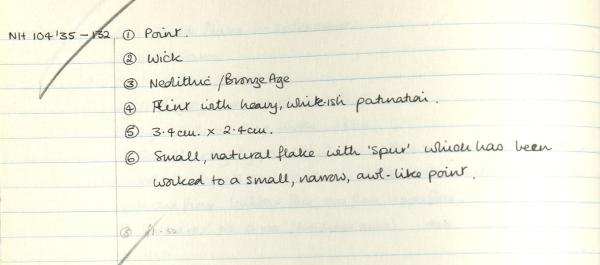 NH 104'35 - 132 ① Point.
② Wick
③ Neolithic / Bronze Age
④ Flint with heavy, whiteish patination.
⑤ 3.4cm. x 2.4cm.
⑥ Small, natural flake with 'spur' which has been
worked to a small, narrow, awl-like point.